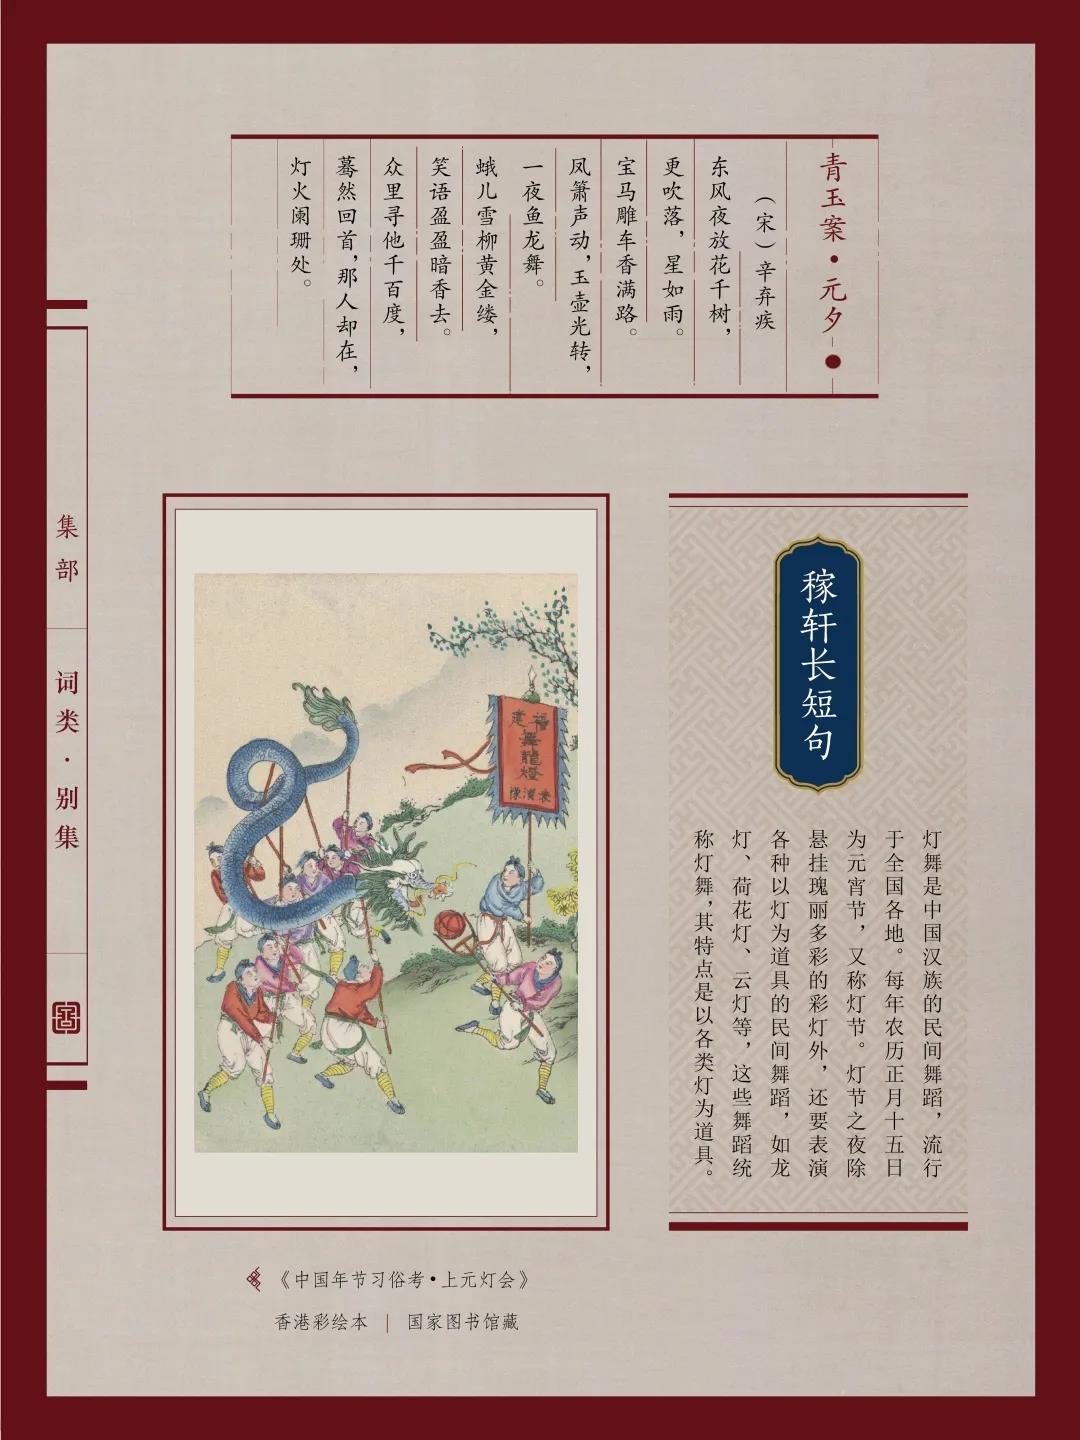 青玉案·元夕
（宋）辛弃疾
东风夜放花千树，
更吹落，星如雨。
宝马雕车香满路。
凤箫声动，玉壶光转，
一夜鱼龙舞。
蛾儿雪柳黄金缕，
笑语盈盈暗香去。
众里寻他千百度，
蓦然回首，那人却在，
灯火阑珊处。
稼轩长短句
灯舞是中国汉族的民间舞蹈，流行
于全国各地。每年农历正月十五日
为元宵节，又称灯节。灯节之夜除
悬挂瑰丽多彩的彩灯外，还要表演
各种以灯为道具的民间舞蹈，如龙
灯、荷花灯、云灯等，这些舞蹈统
称灯舞，其特点是以各类灯为道具。
福建
舞龍燈
表演像
集部
词类·别集
《中国年节习俗考·上元灯会》
香港彩绘本 | 国家图书馆藏